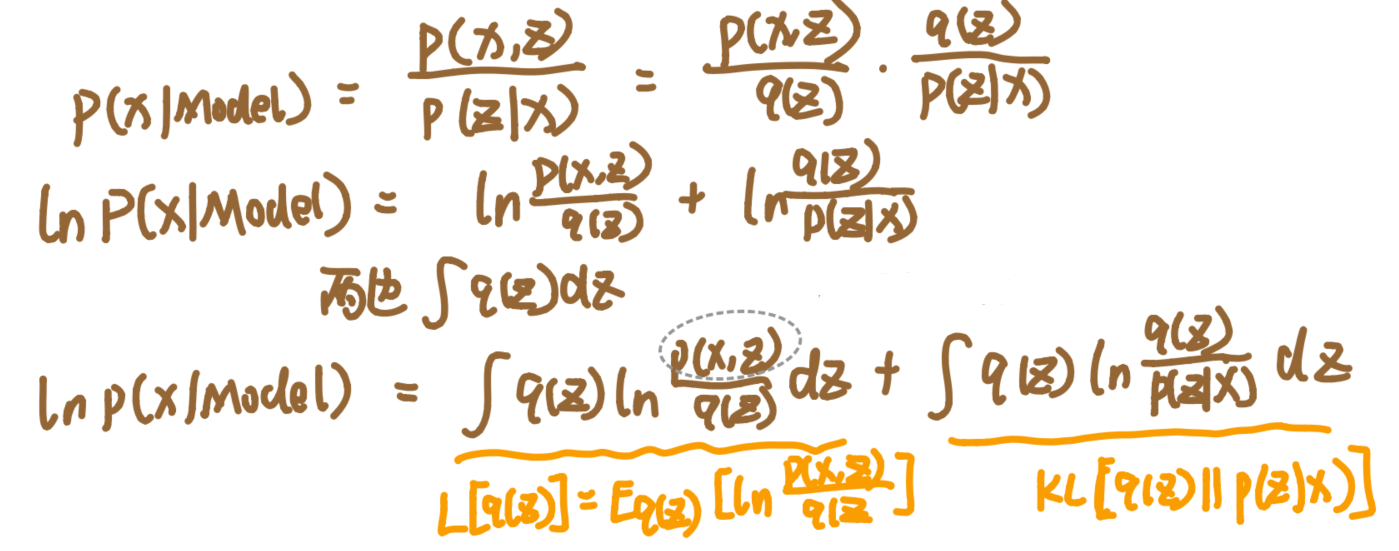 p(x|Model) = p(x,z) / p(z|x) = p(x,z) / q(z) · q(z) / p(z|x)
ln p(x|Model) = ln p(x,z) / q(z) + ln q(z) / p(z|x)
两边 ∫ q(z)dz
ln p(x|Model) = ∫ q(z) ln p(x,z) / q(z) dz + ∫ q(z) ln q(z) / p(z|x) dz
L[q(z)] = E_q(z) [ln p(x,z) / q(z ] KL[q(z) || p(z|x)]